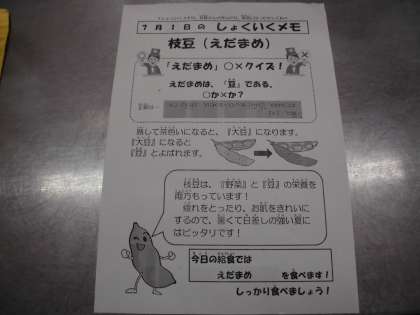 7月1日の しょくいくメモ
枝豆（えだまめ）
「えだまめ」○×クイズ！
えだまめは、『豆』である。
○か×か？
熟して茶色いになると、『大豆』になります。
『大豆』になると
『豆』とよばれます。
枝豆は、『野菜』と『豆』の栄養を
両方もっています！
疲れをとったり、お肌をきれいに
するので、暑くて日差しの強い夏に
はピッタリです！
今日の給食では
えだまめ を食べます！
しっかり食べましょう！